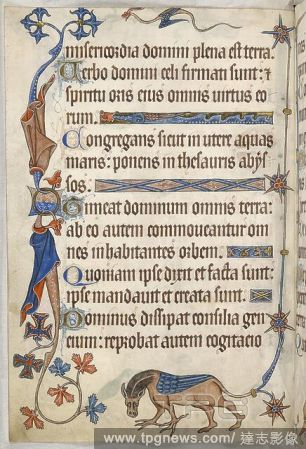 misericordia domini plena est terra.
Verbo domini celi firmati sunt: et
spiritu oris eius omnis uirtus eo
rum.
Congregans sicut in utere aquas
maris: ponens in thesauris abys
sos.
Timeat dominum omnis terra:
ab eo autem commoueantur om
nes inhabitantes orbem.
Quoniam ipse dixit et facta sunt:
ipse mandauit et creata sunt.
Dominus dissipat consilia gen
cium: reprobat autem cogitacio
TPG
www.tpgnews.com / 達志影像